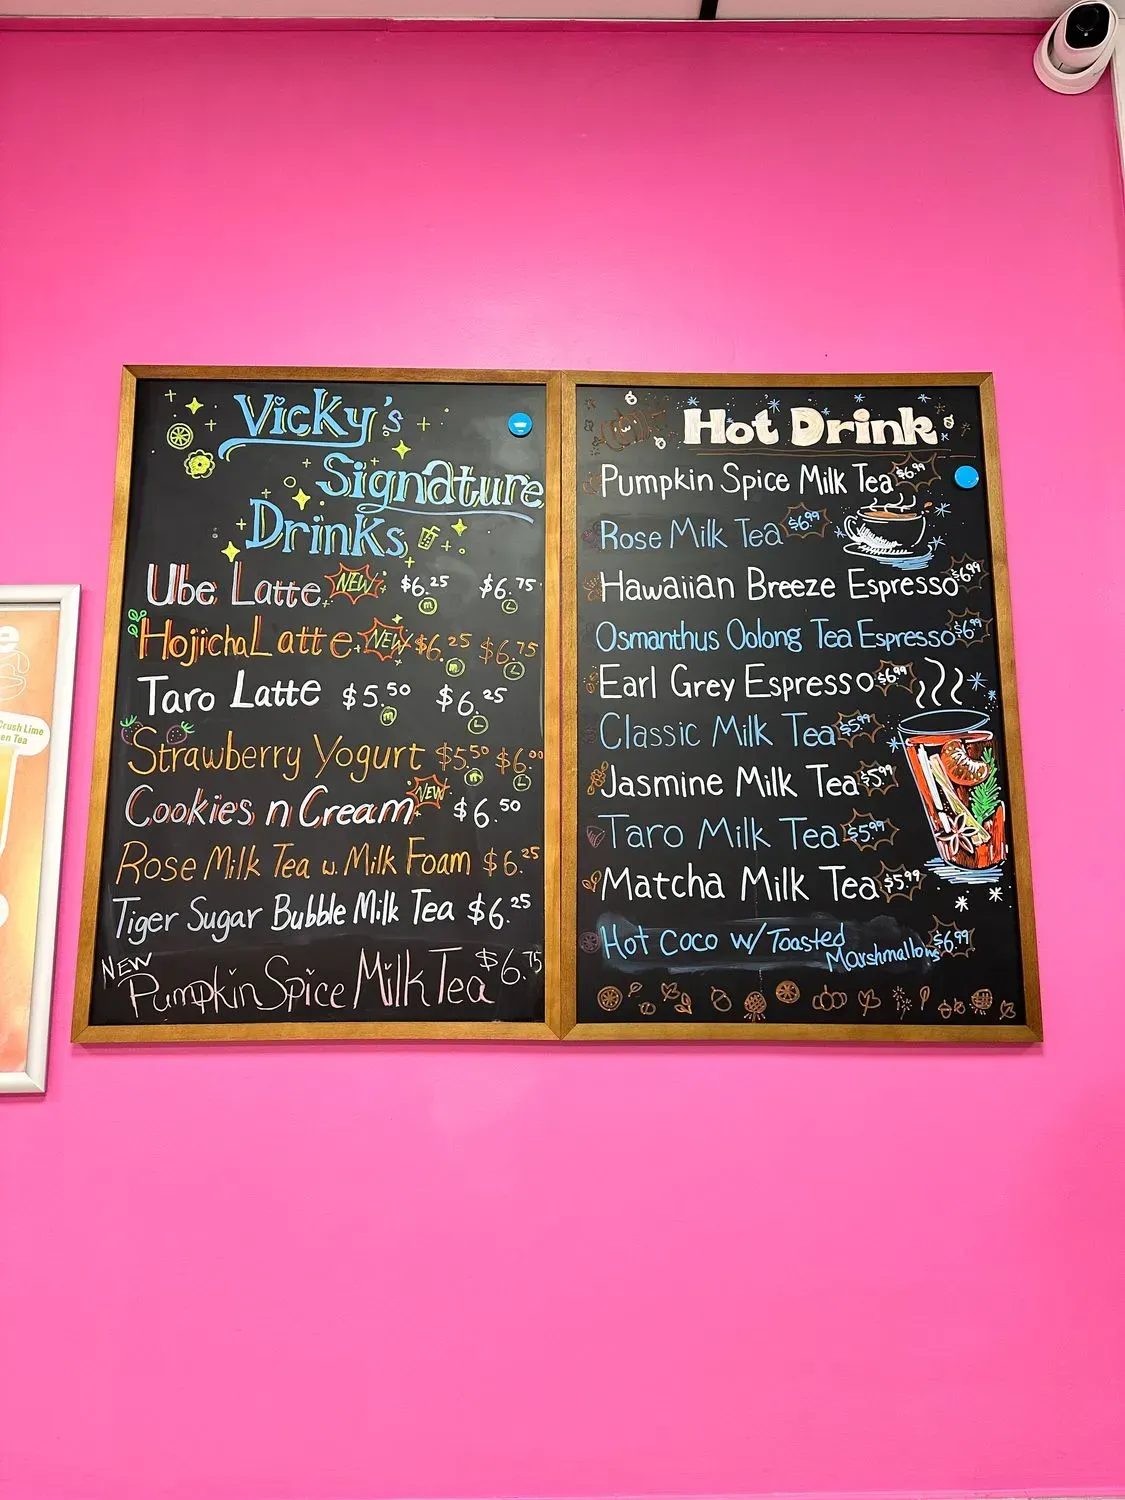 Vicky's
Signature
Drinks
Ube Latte NEW $6.25 $6.75
M L
Hojicha Latte NEW $6.25 $6.75
M L
Taro Latte $5.50 $6.25
M L
Strawberry Yogurt $5.50 $6.00
M L
Cookies n Cream NEW $6.50
Rose Milk Tea w. Milk Foam $6.25
Tiger Sugar Bubble Milk Tea $6.25
NEW
Pumpkin Spice Milk Tea $6.75
Hot Drink
Pumpkin Spice Milk Tea $6.99
Rose Milk Tea $6.99
Hawaiian Breeze Espresso $6.99
Osmanthus Oolong Tea Espresso $6.99
Earl Grey Espresso $6.99
Classic Milk Tea $5.99
Jasmine Milk Tea $5.99
Taro Milk Tea $5.99
Matcha Milk Tea $5.99
Hot Coco w/ Toasted
Marshmallows $6.99
Crush Lime
en Tea